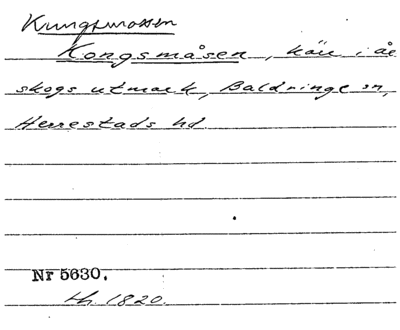 Kungsmossen
Kongsmåsen, kärr i år
skogs utmark, Baldringe sn,
Herrestads hd.
Nr 5630.
th. 1820.